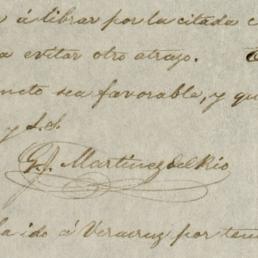 á librar por la citada c
a evitar otro atrazo.
ncto sea favorable, y qu
y s.s.
G. J. Martinez del Rio
ha ido á Veracruz por ten